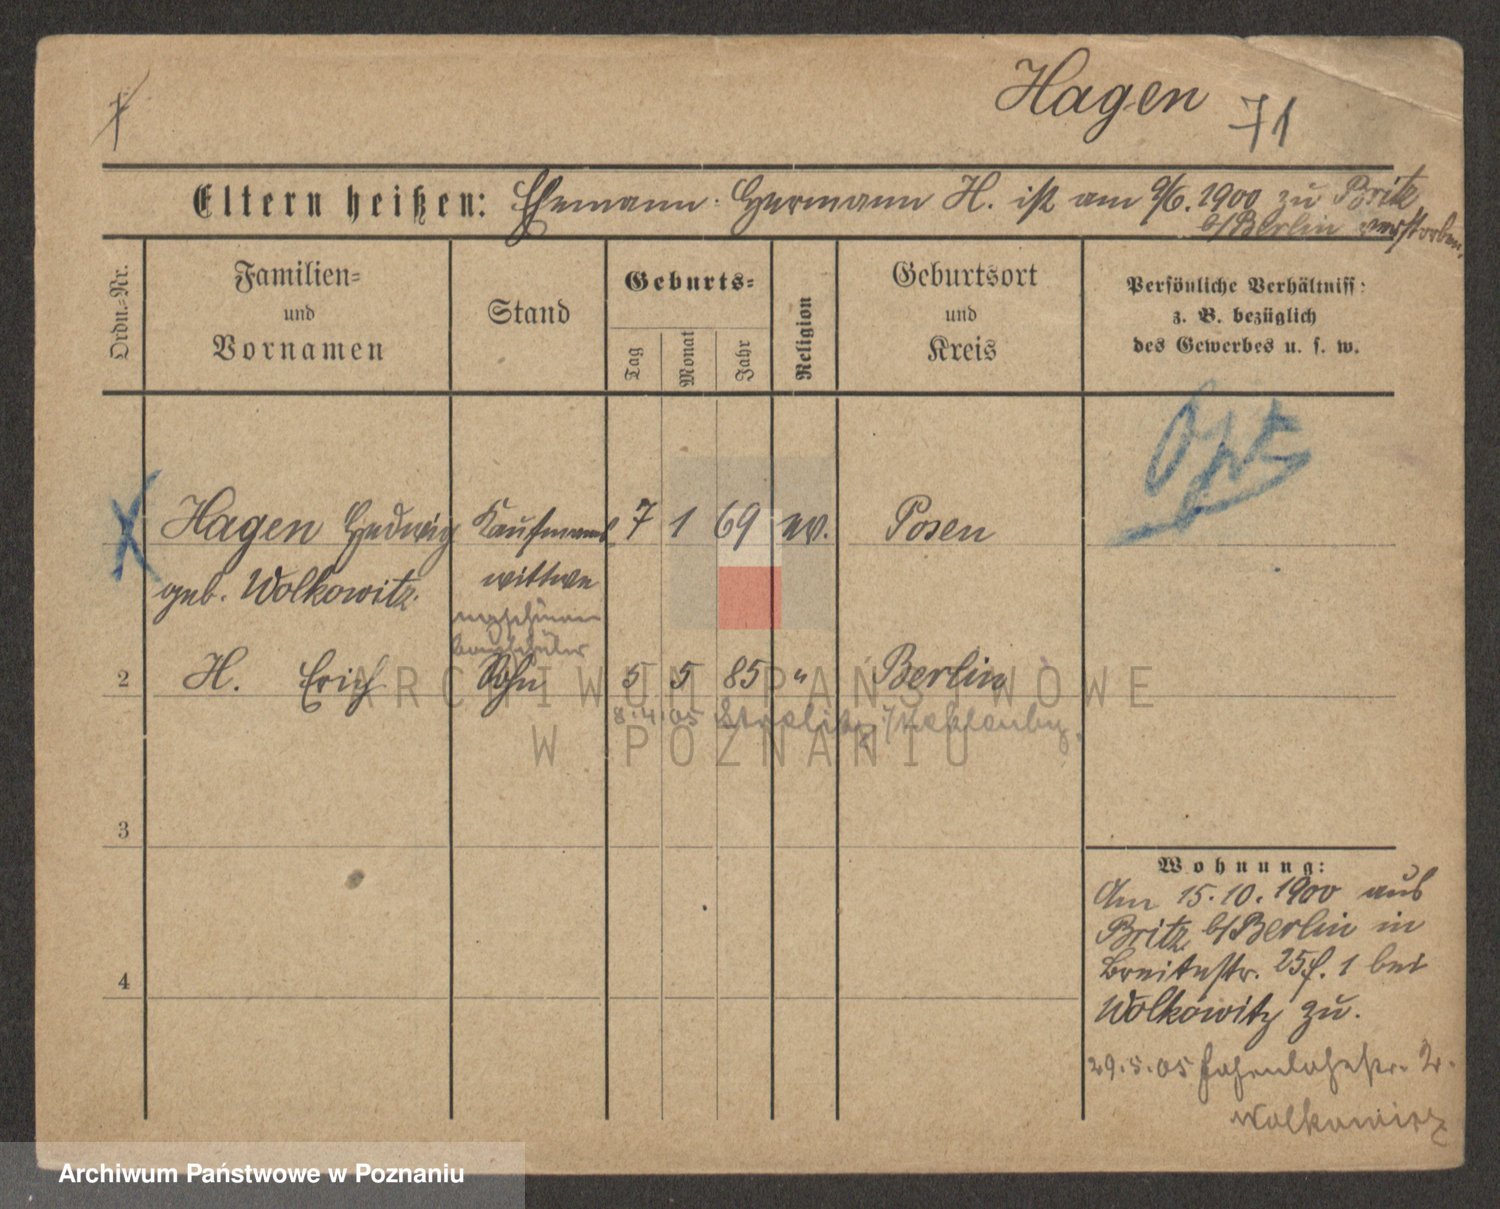 Hagen 71
Eltern heißen: Ehemann: Hermann H. ist am 9/6. 1900 zu Britz
b/Berlin verstorben.
Ordn.-Nr.
Familien-
und
Vornamen
Stand
Geburts-
Tag
Monat
Jahr
Religion
Geburtsort
und
Kreis
Persönliche Verhältniss:
z. B. bezüglich
des Gewerbes u. s. w.
Hagen Hedwig Kaufmanns 7 1 69 ev. Posen
geb. Wolkowitz. wittwe
Maschinen
bauschüler
2 H. Erich Sohn 5 5 85 " Berlin
8.4.05 Strelitz
3
4
Wohnung:
Am 15.10.1900 aus
Britz b/Berlin in
Breitestr. 25 f. 1 bei
Wolkowitz zu.
29.5.05
Wolkowitz
ARCHIWUM PAŃSTWOWE
W POZNANIU
Archiwum Państwowe w Poznaniu